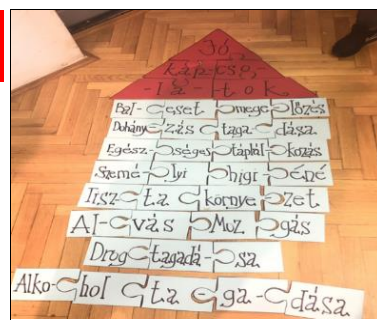 Jó,
kap-cso,-
-la-tok
Bal-eset megelőzés
Dohányzás tagadása
Egészséges táplálkozás
Személyi higiéné
Tiszta környezet
Alvás Mozgás
Drogtagadá-sa
Alko-hol taga-dása